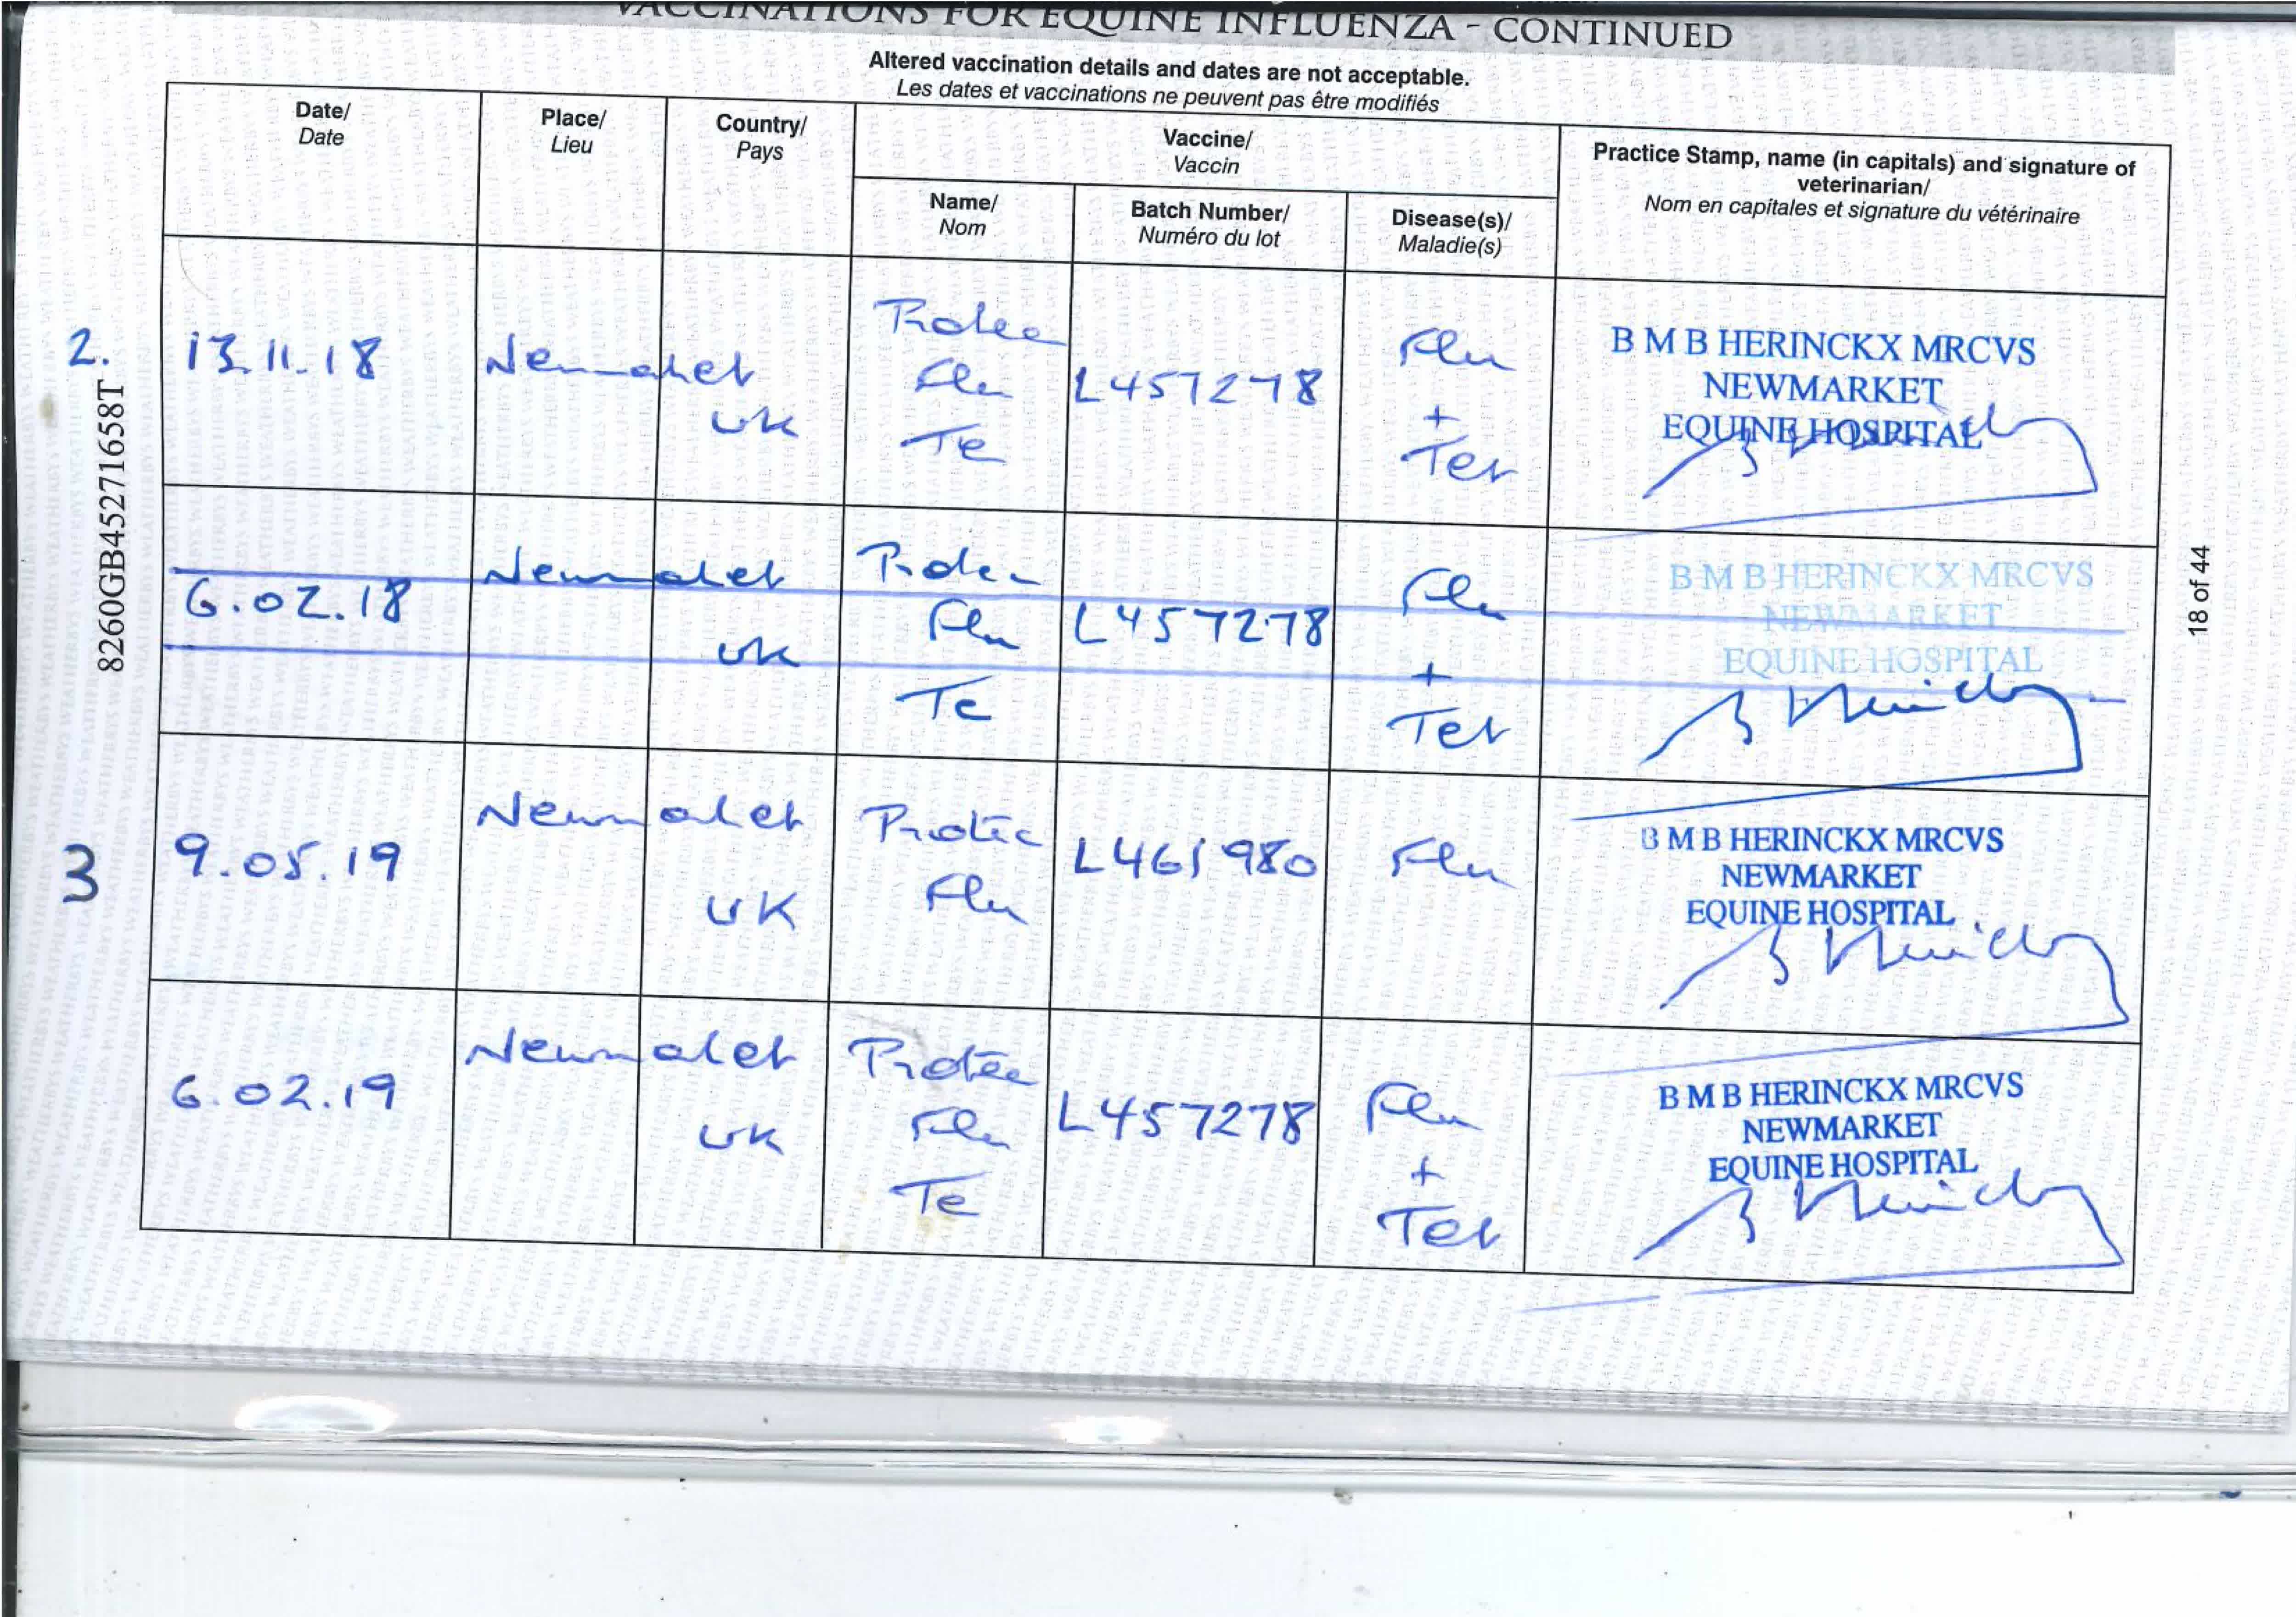 VACCINATIONS FOR EQUINE INFLUENZA - CONTINUED
Altered vaccination details and dates are not acceptable.
Les dates et vaccinations ne peuvent pas être modifiés
Date/
Date
Place/
Lieu
Country/
Pays
Vaccine/
Vaccin
Name/
Nom
Batch Number/
Numéro du lot
Disease(s)/
Maladie(s)
Practice Stamp, name (in capitals) and signature of
veterinarian/
Nom en capitales et signature du vétérinaire
8260GB45271658T
18 of 44
2.
13.11.18
Newmarket
UK
Protec
Flu
Te
L457278
Flu
+
Tet
B M B HERINCKX MRCVS
NEWMARKET
EQUINE HOSPITAL
6.02.18
Newmarket
UK
Protec
Flu
Te
L457278
Flu
+
Tet
B M B HERINCKX MRCVS
NEWMARKET
EQUINE HOSPITAL
3
9.05.19
Newmarket
UK
Protec
Flu
L461980
Flu
B M B HERINCKX MRCVS
NEWMARKET
EQUINE HOSPITAL
6.02.19
Newmarket
UK
Protec
Flu
Te
L457278
Flu
+
Tet
B M B HERINCKX MRCVS
NEWMARKET
EQUINE HOSPITAL